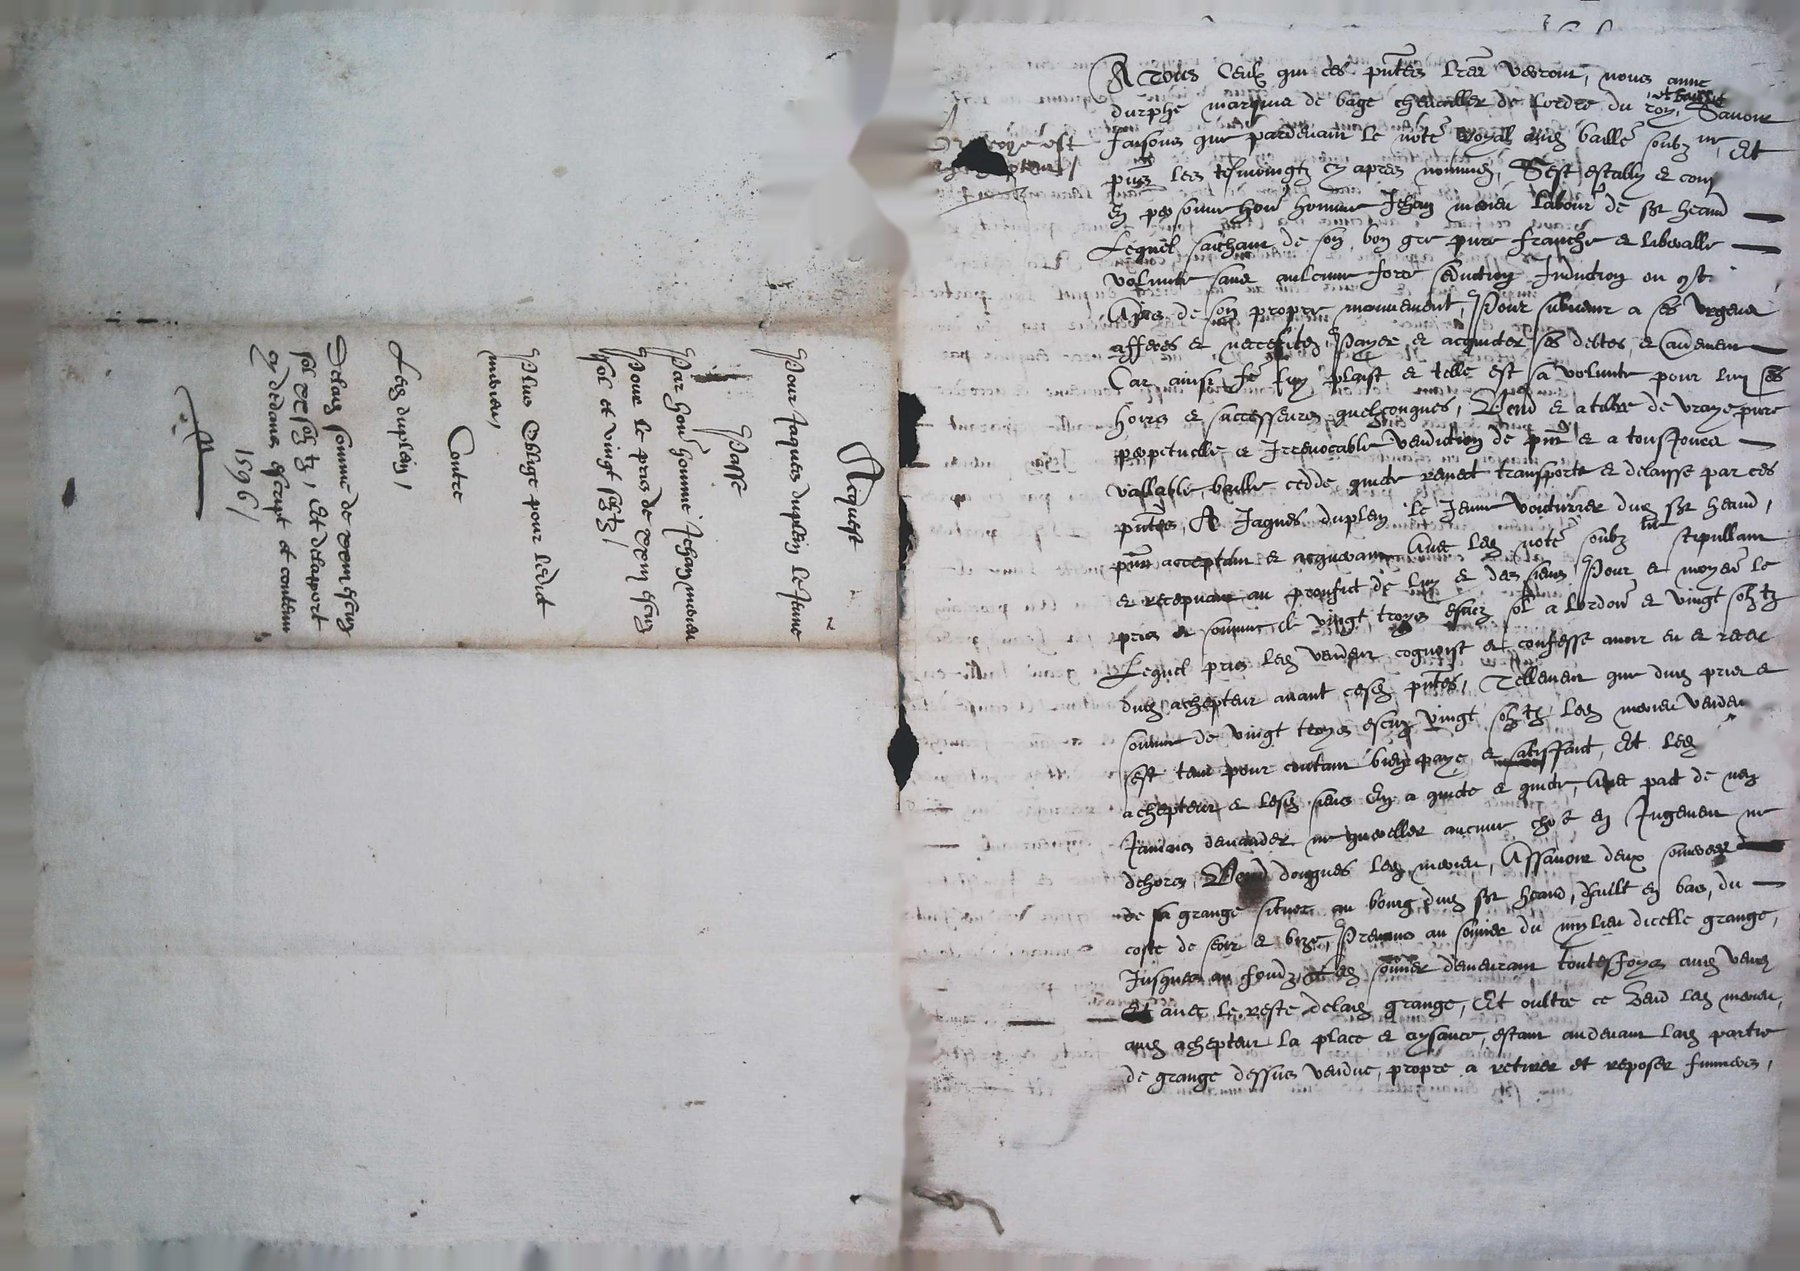 Acquest
Pour Jaques duplein le Jeune
Passé
Par hon. homme Jehan
Pour le pris de escuz
sol et vingt solz tz /
Plus Oblige pour ledict
Contre
Led duplein /
Delad somme de escuz
sol solz tz, Et delaport
cy dedans escript et contenu
1596 /
A Tous Ceulx qui ces pntes lres verront, nous anne
durphe marquis de bage chevallier de lordre du roy, Savoir
faisons que pardevant le notre royal aud baille soubz ne, Et
pns les tesmoingtz cy apres nommes, S'est estably et
En personne hon homme Jehan labour de St heand
Lequel saichant de son bon gre pure franche et liberalle
volunte sans aulcune force seduction Induction ou
Ains de son propre mouvement, Pour subvenir a ses urgens
afferes et necessites, Payer et acquicter ses debtes, et
Car ainsi luy plaist et telle est sa volunte pour luy ses
hoirs et successeurs quelconques, Vend et a tiltre de vraye pure
perpetuelle et Irrevocable vendiction de pnt et a tousjours
vallable, baille cedde quicte remect transporte et delaisse par ces
pntes, A Jaques duplein le Jeune voiturier dud St heand,
pnt acceptant et acquerant avec led notre soubz ne stipullant
et recepvant au prouffict de luy et des siens Pour et moyen le
pris et somme de vingt troys escuz sol a lordon et vingt solz tz
Lequel pris led vendeur cognoist et confesse avoir eu et receu
dud achepteur avant cesd pntes, Tellement que dud pris et
somme de vingt troys escuz vingt solz tz led vendeur
s'est tenu pour contant bien paye et satisffaict, Et led
achepteur et lesd siens En a quicte et quicte, Avec pact de ne
Jamais demander ne quereller aucune chose En Jugement ne
dehors, Vend doncques led Assavoir deux
de sa grange situee au bourg dud St heand, d'ault en bas, du
coste de soir et bize, Prenans au du mylieu dicelle grange,
Jusques au fondz, demeurant toutesfoys aud vend
et avec le reste delad grange, Et oultre ce Vend led
aud achepteur la place et aysance, estant audevant lad partie
de grange dessus vendue, propre a retirer et reposer fumiers,